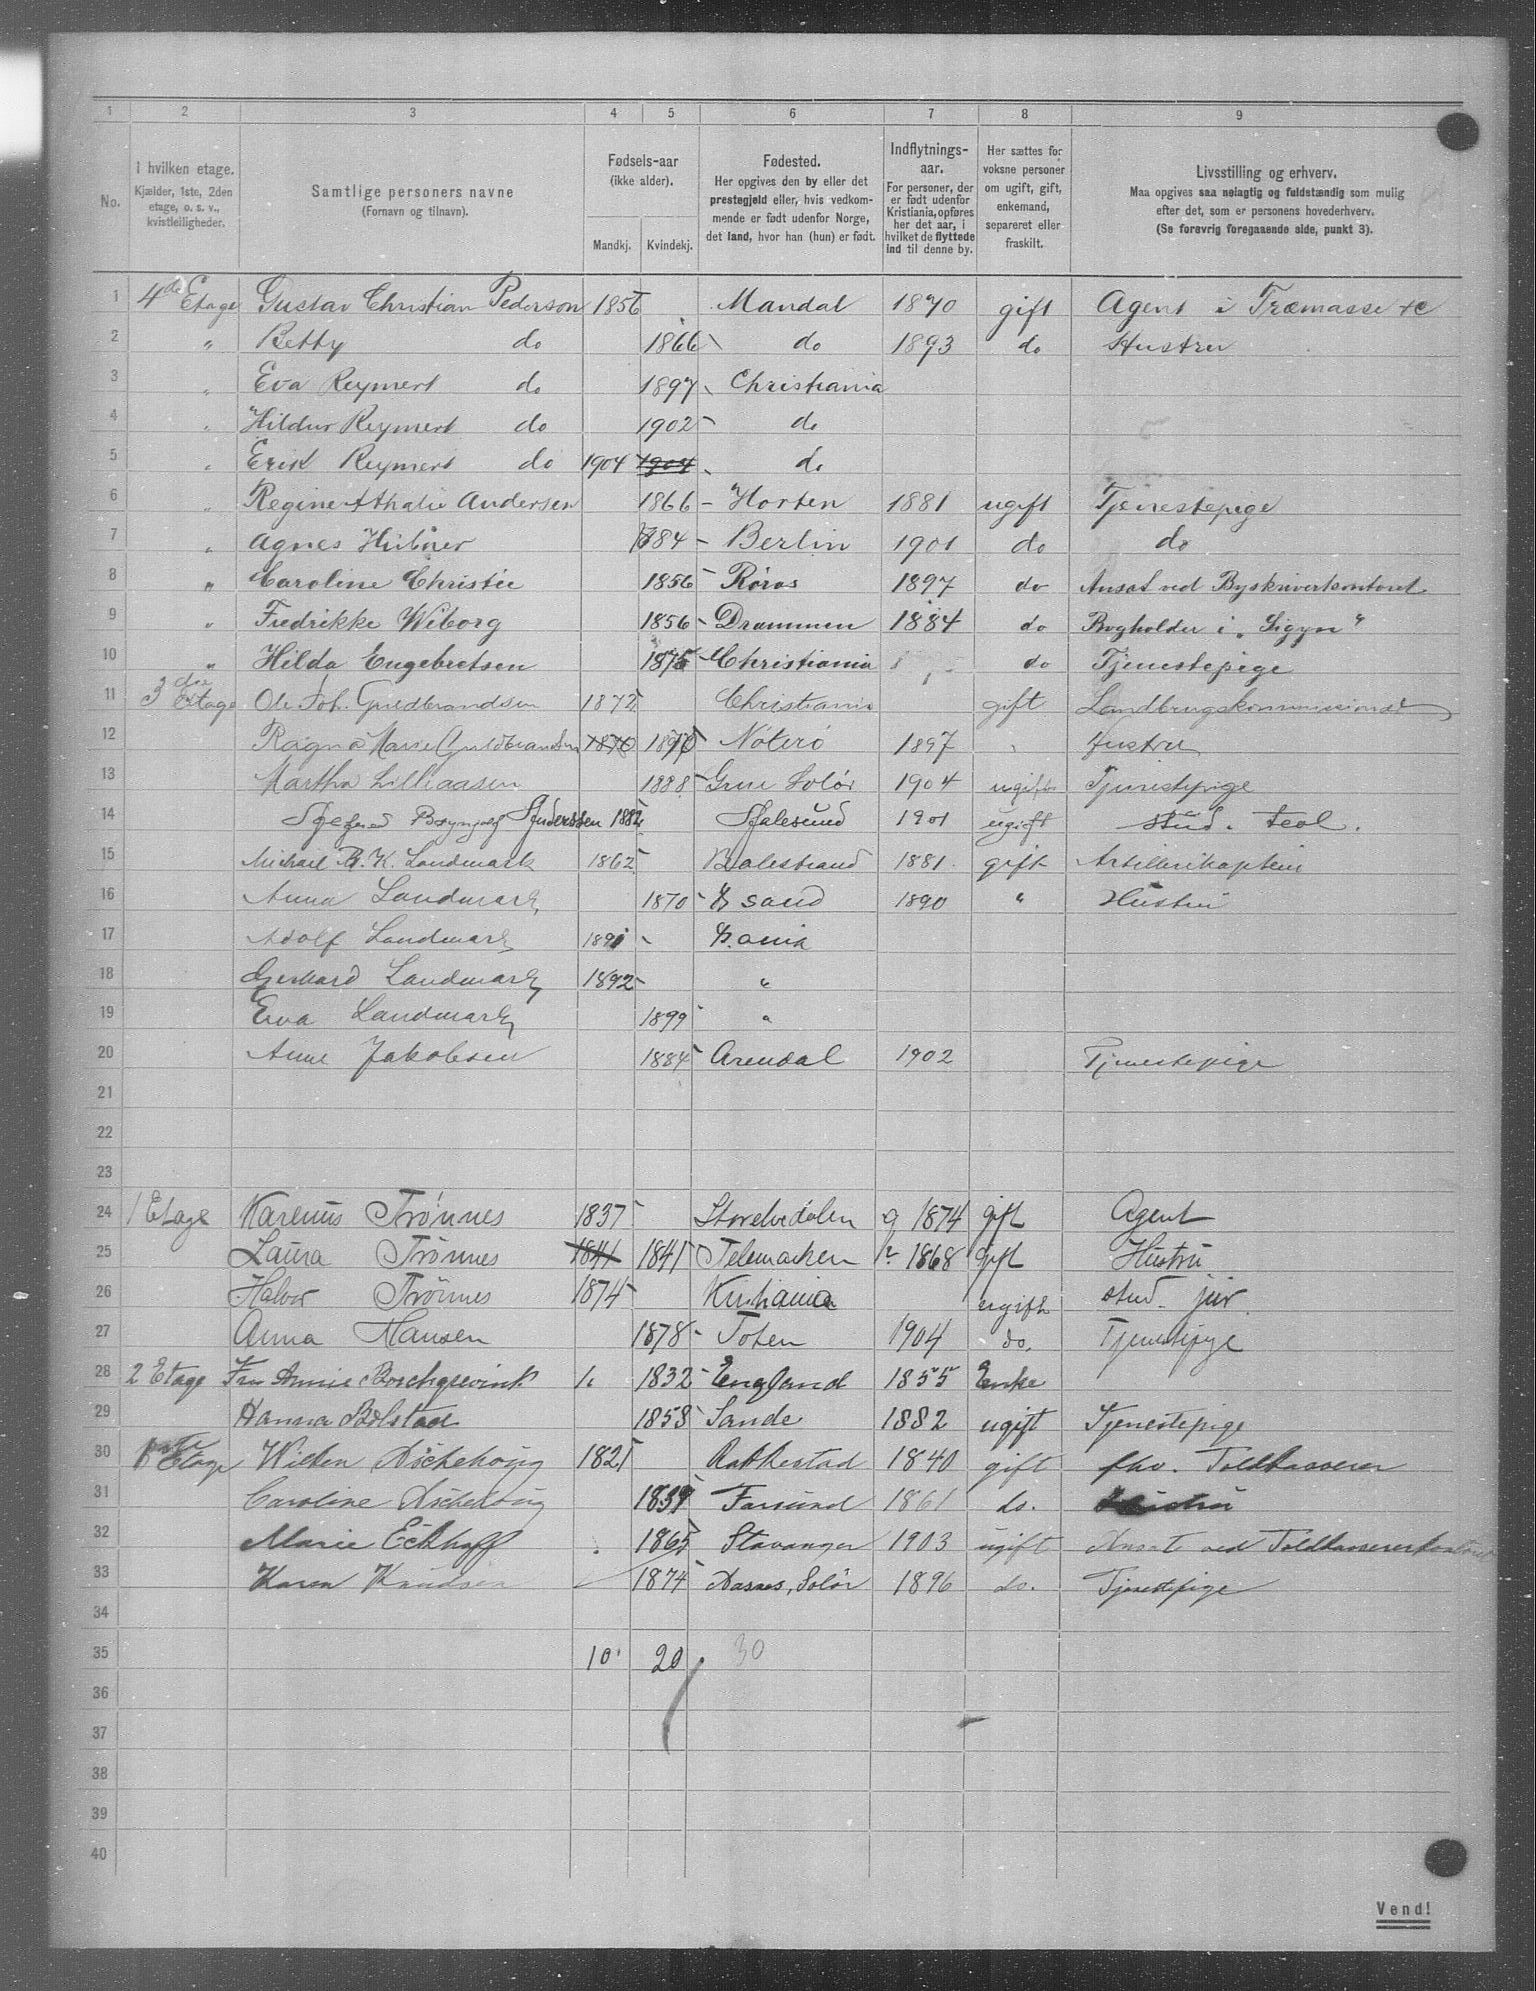 1 2 3 4 5 6 7 8 9
No. I hvilken etage. Kjælder, 1ste, 2den etage, o. s. v., kvistleiligheder. Samtlige personers navne (Fornavn og tilnavn). Fødsels-aar (ikke alder). Mandkj. Kvindekj. Fødested. Her opgives den by eller det prestegjeld eller, hvis vedkommende er født udenfor Norge, det land, hvor han (hun) er født. Indflytnings-aar. For personer, der er født udenfor Kristiania, opføres her det aar, i hvilket de flyttede ind til denne by. Her sættes for voksne personer om ugift, gift, enkemand, separeret eller fraskilt. Livsstilling og erhverv. Maa opgives saa nøiagtig og fuldstændig som mulig efter det, som er personens hovederhverv. (Se forøvrig foregaaende side, punkt 3).
1 4de Etage Gustav Christian Pederson 1856 Mandal 1870 gift Agent i Træmasse &c
2 " Betty do 1866 do 1893 do Hustru
3 " Eva Reymert do 1897 Christiania
4 " Hildur Reymert do 1902 do
5 " Erik Reymert do 1904 1904 do
6 " Regine Athalie Andersen 1866 Horten 1881 ugift Tjenestepige
7 " Agnes Hübner 1884 Berlin 1901 do do
8 " Caroline Christie 1856 Röros 1897 do Ansat ved Byskriverkontoret
9 " Fredrikke Wiborg 1856 Drammen 1884 do Bogholder i "Sigyn"
10 " Hilda Engebretsen 1875 Christiania do Tjenestepige
11 3die Etage Ole Joh. Guldbrandsen 1872 Christiania gift Landbrugskommissionær
12 Ragna Marie Guldbrandsen 1870 1870 Nöterö 1897 " Hustru
13 Martha Lilleaasen 1888 Grue Solör 1904 ugift Tjenestepige
14 Brynjolf 1882 1901 ugift stud. teol.
15 Michael B. K. Landmark 1862 Balestrand 1881 gift Artillerikaptein
16 Anna Landmark 1870 Kr sand 1890 " Hustru
17 Adolf Landmark 1891 Kr.ania
18 Gerhard Landmark 1892 "
19 Eva Landmark 1899 "
20 Anne Jakobsen 1884 Arendal 1902 Tjenestepige
21
22
23
24 1 Etage Karenus Trönnes 1837 Storelvedalen 1874 gift Agent
25 Laura Trönnes 1841 1841 Telemarken 1868 gift Hustru
26 Halvor Trönnes 1874 Kristiania ugift stud. jur.
27 Anna Hansen 1878 Toten 1904 do. Tjenestepige
28 2 Etage Fru Annie Borchgrevink 1832 England 1855 Enke
29 Hanna Bolstad 1858 Sande 1882 ugift Tjenestepige
30 1ste Etage Wilken Aschehoug 1821 Rakkestad 1840 gift fhv. Toldkasserer
31 Caroline Aschehoug 1839 Farsund 1861 do. Hustru
32 Marie Eckhoff 1865 Stavanger 1903 ugift Ansat ved Toldkassererkontoret
33 Karen Knudsen 1874 Aasnes, Solör 1896 do. Tjenestepige
34
35 10 20 30
36
37
38
39
40
Vend!